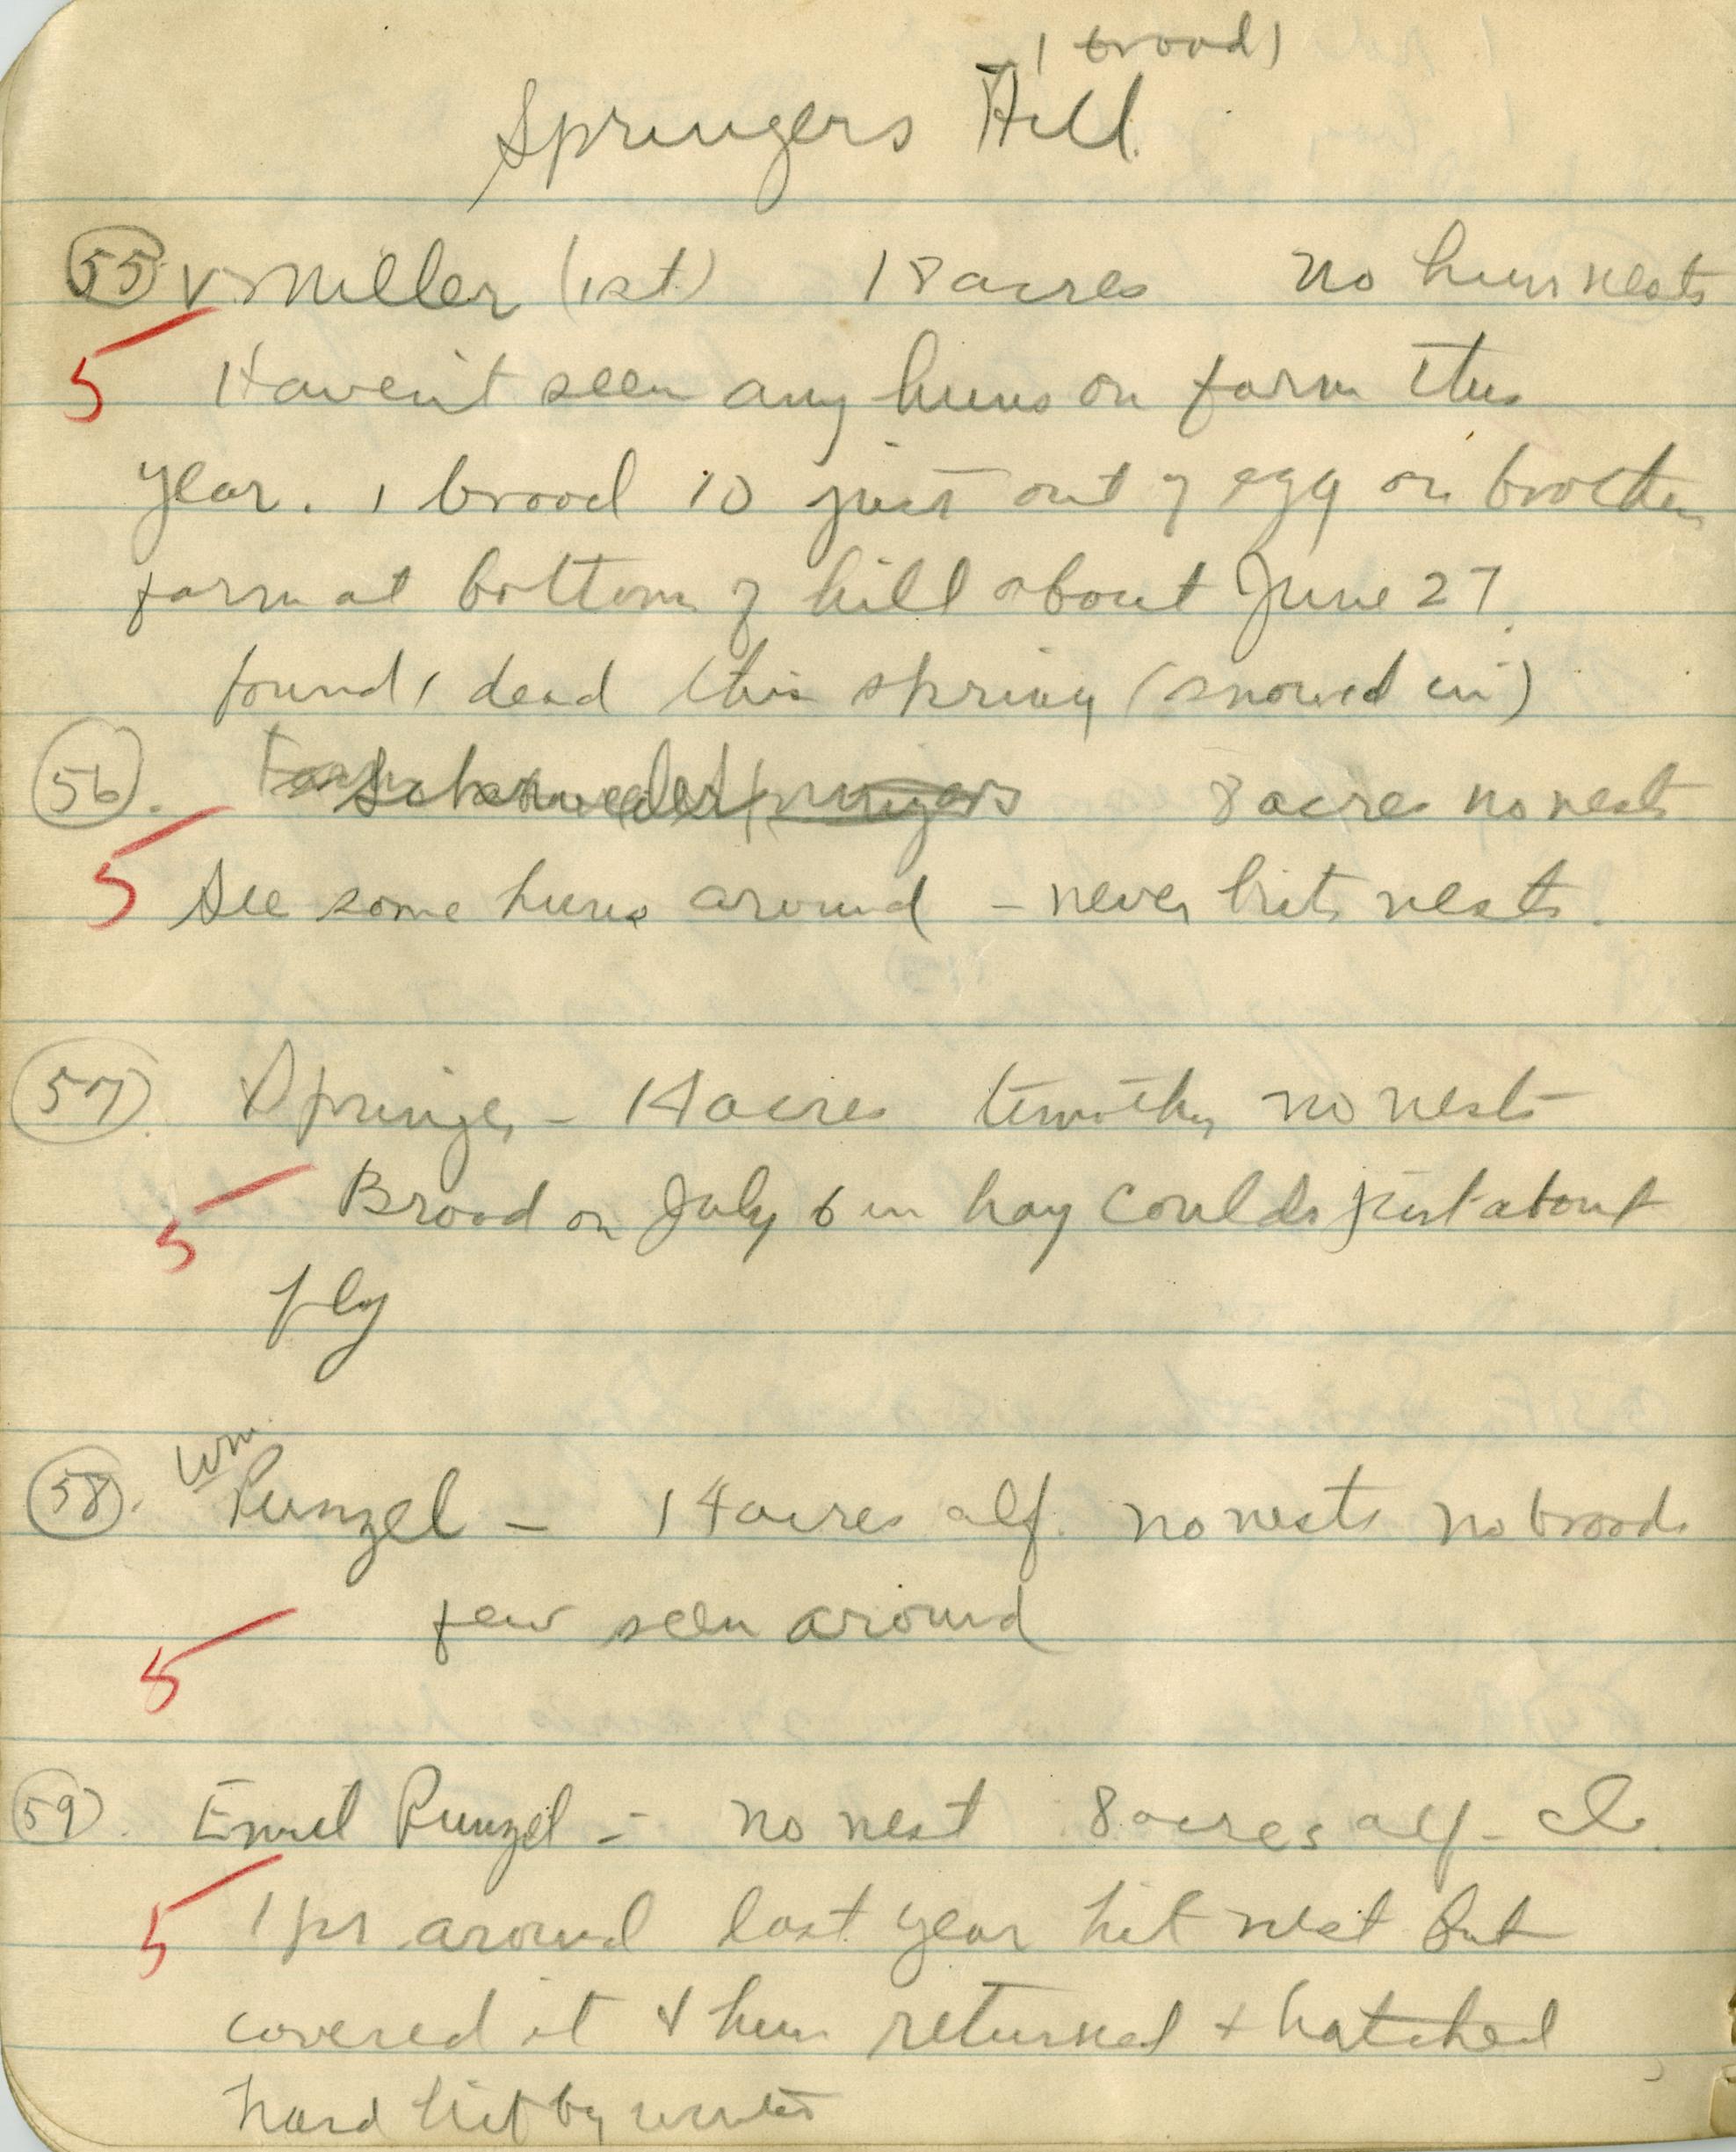 1 brood 1
Springers Hill
55 V. Miller (1st) 18 acres no hun nests
5 Haven't seen any huns on farm this
year. 1 brood 10 just out of egg on brother
farm at bottom of hill about June 27.
found 1 dead this spring (snowed in)
56. 8 acres no nests
5 See some huns around - never hits nests.
57. Springer - 14 acres timothy no nests
5 Brood on July 6 in hay could just about
fly
58. Wm Punzel - 14 acres alf. no nests no broods
few seen around
5
59. Emil Punzel - no nest 8 acres alf -
5 1 pr around last year hit nest but
covered it & hun returned + hatched
hard hit by winter